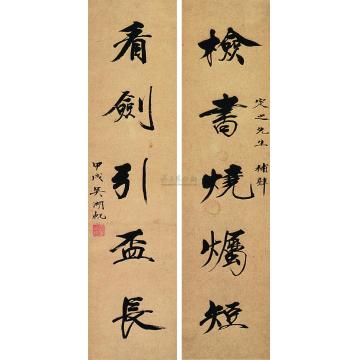 檢書燒燭短
定之先生 補壁
看劍引盃長
甲戌吳湖帆